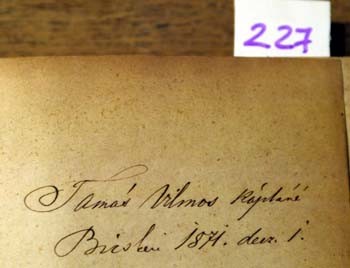 227
Tamás Vilmos káplané
Bicskei 1871. decz. 1.